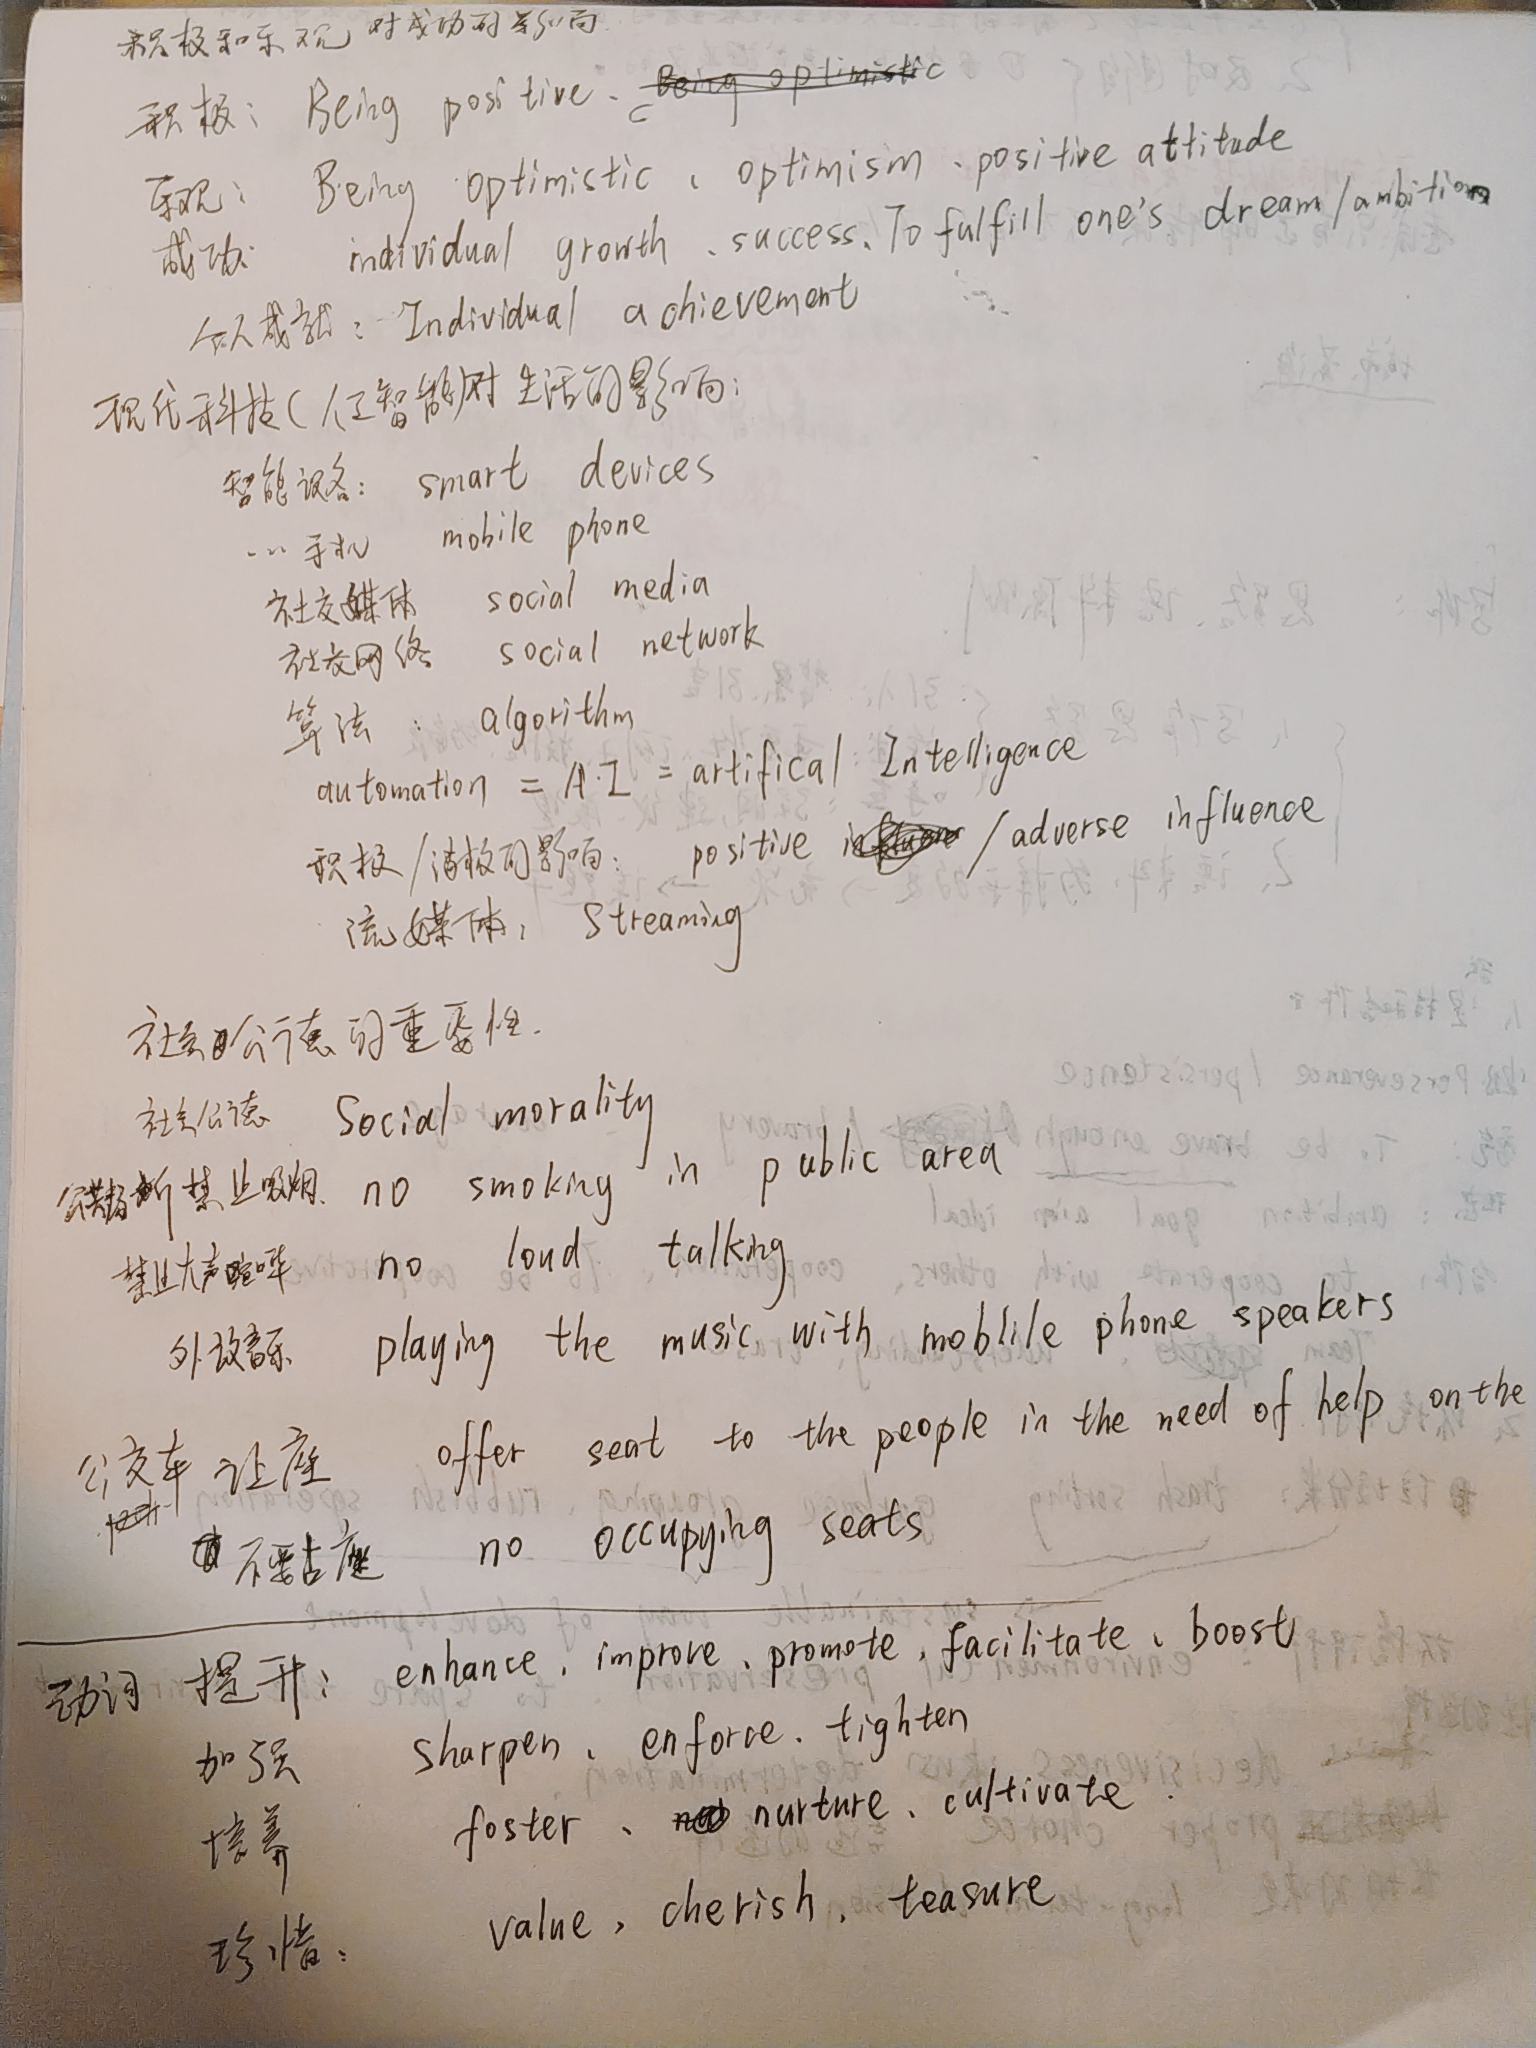 积极和乐观对成功的影响
积极: Being positive、
乐观: Being optimistic、optimism、positive attitude
成功: individual growth、success、To fulfill one's dream/ambition
个人成就: Individual achievement
现代科技(人工智能)对生活的影响:
智能设备: smart devices
...手机 mobile phone
社交媒体 social media
社交网络 social network
算法: algorithm
automation = A.I = artifical Intelligence
积极/消极的影响: positive /adverse influence
流媒体: Streaming
社会公德的重要性.
社会公德 Social morality
公共场所禁止吸烟. no smoking in public area
禁止大声喧哗 no loud talking
外放音乐 playing the music with moblile phone speakers
公交车让座 offer seat to the people in the need of help on the
不要占座 no occupying seats
动词 提升: enhance、improve、promote、facilitate、boost
加强 sharpen、enforce、tighten
培养 foster、nurture、cultivate.
珍惜: value、cherish、teasure